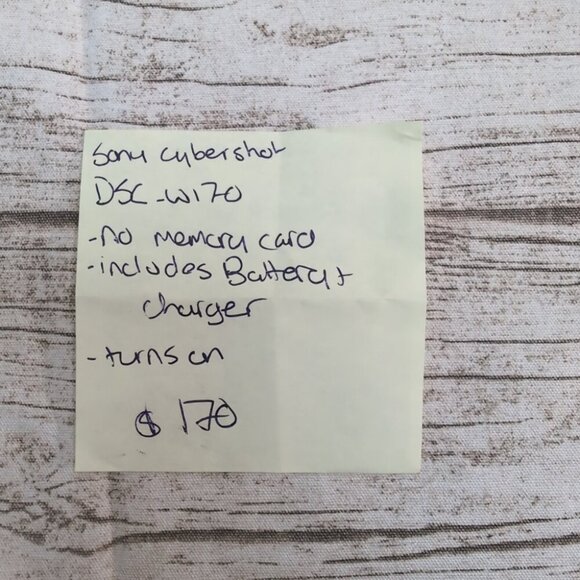 Sony cybershot
DSC-W170
-no memory card
-includes Battery +
charger
-turns on
$ 170